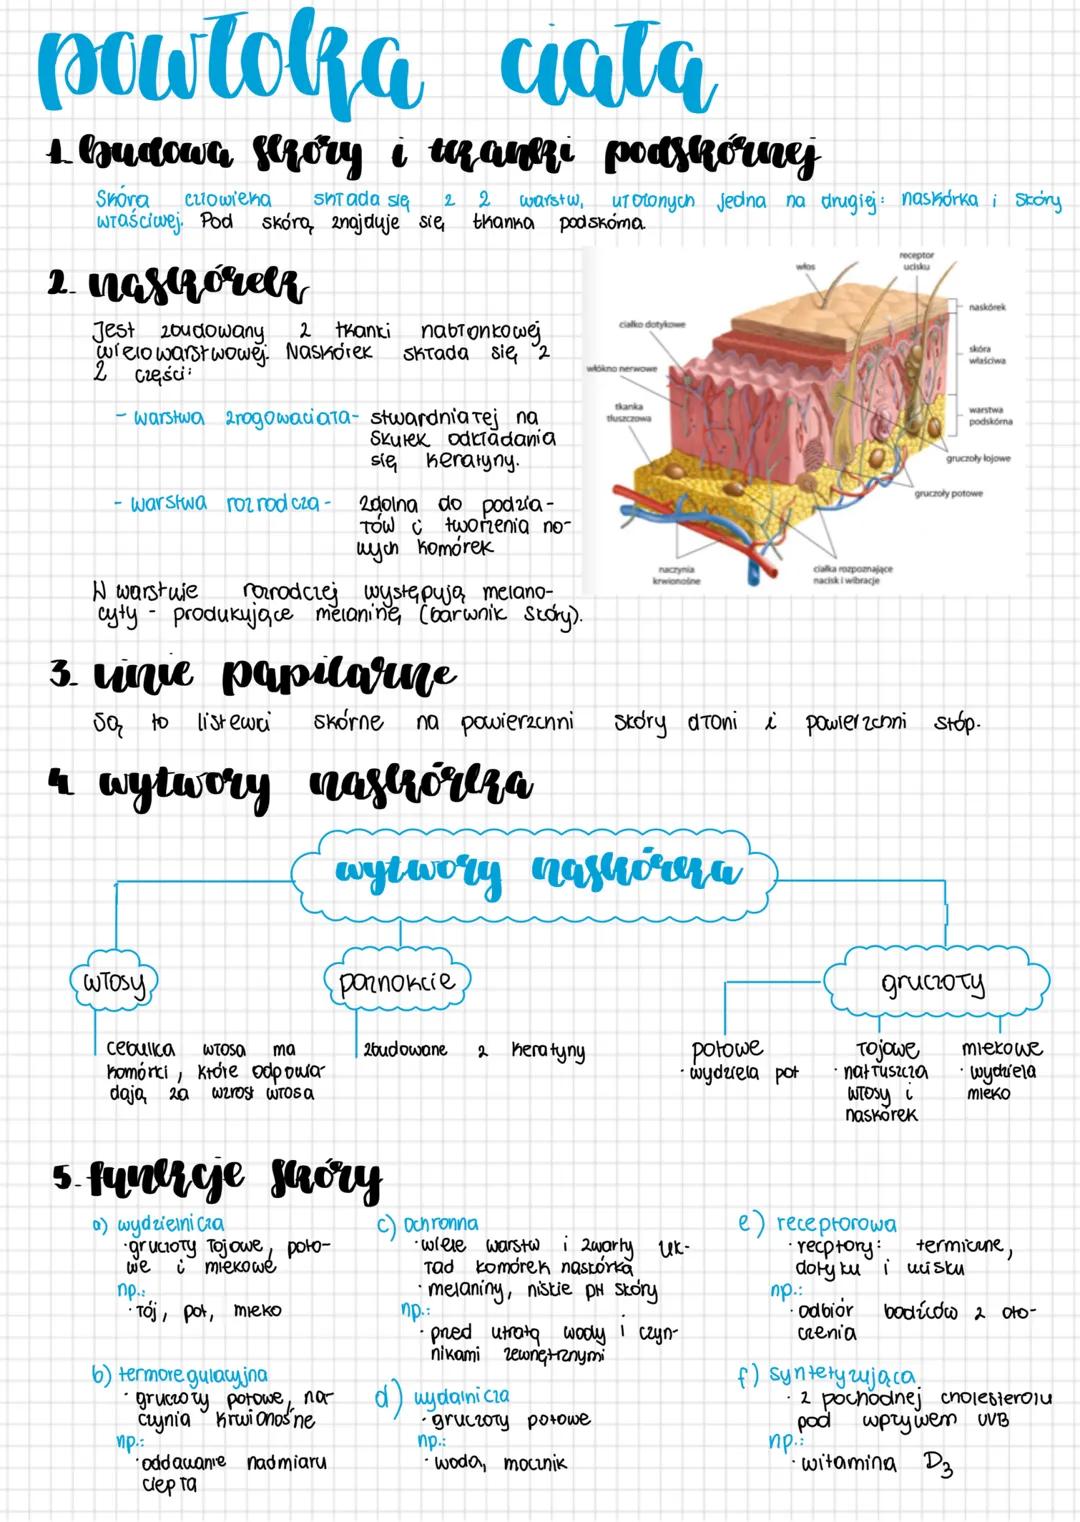 powłoka ciała
1. budowa skóry i tkanki podskórnej
Skóra człowieka składa się z 2 warstw, ułożonych jedna na drugiej: naskórka i skóry
właściwej. Pod skórą znajduje się tkanka podskórna.
2. naskórek
Jest zbudowany z tkanki nabłonkowej
wielowarstwowej. Naskórek składa się z
2 części:
- warstwa zrogowaciała - stwardniałej na
skutek odkładania
się keratyny.
- warstwa rozrodcza - zdolna do podzia-
łów i tworzenia no-
wych komórek
W warstwie rozrodczej występują melano-
cyty - produkujące melaninę (barwnik skóry).
włos
receptor
ucisku
ciałko dotykowe
naskórek
włókno nerwowe
skóra
właściwa
tkanka
tłuszczowa
warstwa
podskórna
gruczoły łojowe
gruczoły potowe
naczynia
krwionośne
ciałka rozpoznające
nacisk i wibracje
3. linie papilarne
Są to listewki skórne na powierzchni skóry dłoni i powierzchni stóp.
4. wytwory naskórka
wytwory naskórka
włosy
paznokcie
gruczoły
cebulka włosa ma
komórki, które odpowia-
dają za wzrost włosa
zbudowane z keratyny
potowe
· wydziela pot
łojowe
· natłuszcza
włosy i
naskórek
mlekowe
· wydziela
mleko
5. funkcje skóry
a) wydzielnicza
· gruczoły łojowe, poto-
we i mlekowe
np.:
· łój, pot, mleko
b) termoregulacyjna
· gruczoły potowe, na-
czynia krwionośne
np.:
· oddawanie nadmiaru
ciepła
c) ochronna
· wiele warstw i zwarty uk-
ład komórek naskórka
· melaniny, niskie pH skóry
np.:
· przed utratą wody i czyn-
nikami zewnętrznymi
d) wydalnicza
· gruczoły potowe
np.:
· woda, mocznik
e) receptorowa
· recptory: termiczne,
dotyku i ucisku
np.:
· odbiór bodźców z oto-
czenia
f) syntetyzująca
· z pochodnej cholesterolu
pod wpływem UVB
np.:
· witamina D3